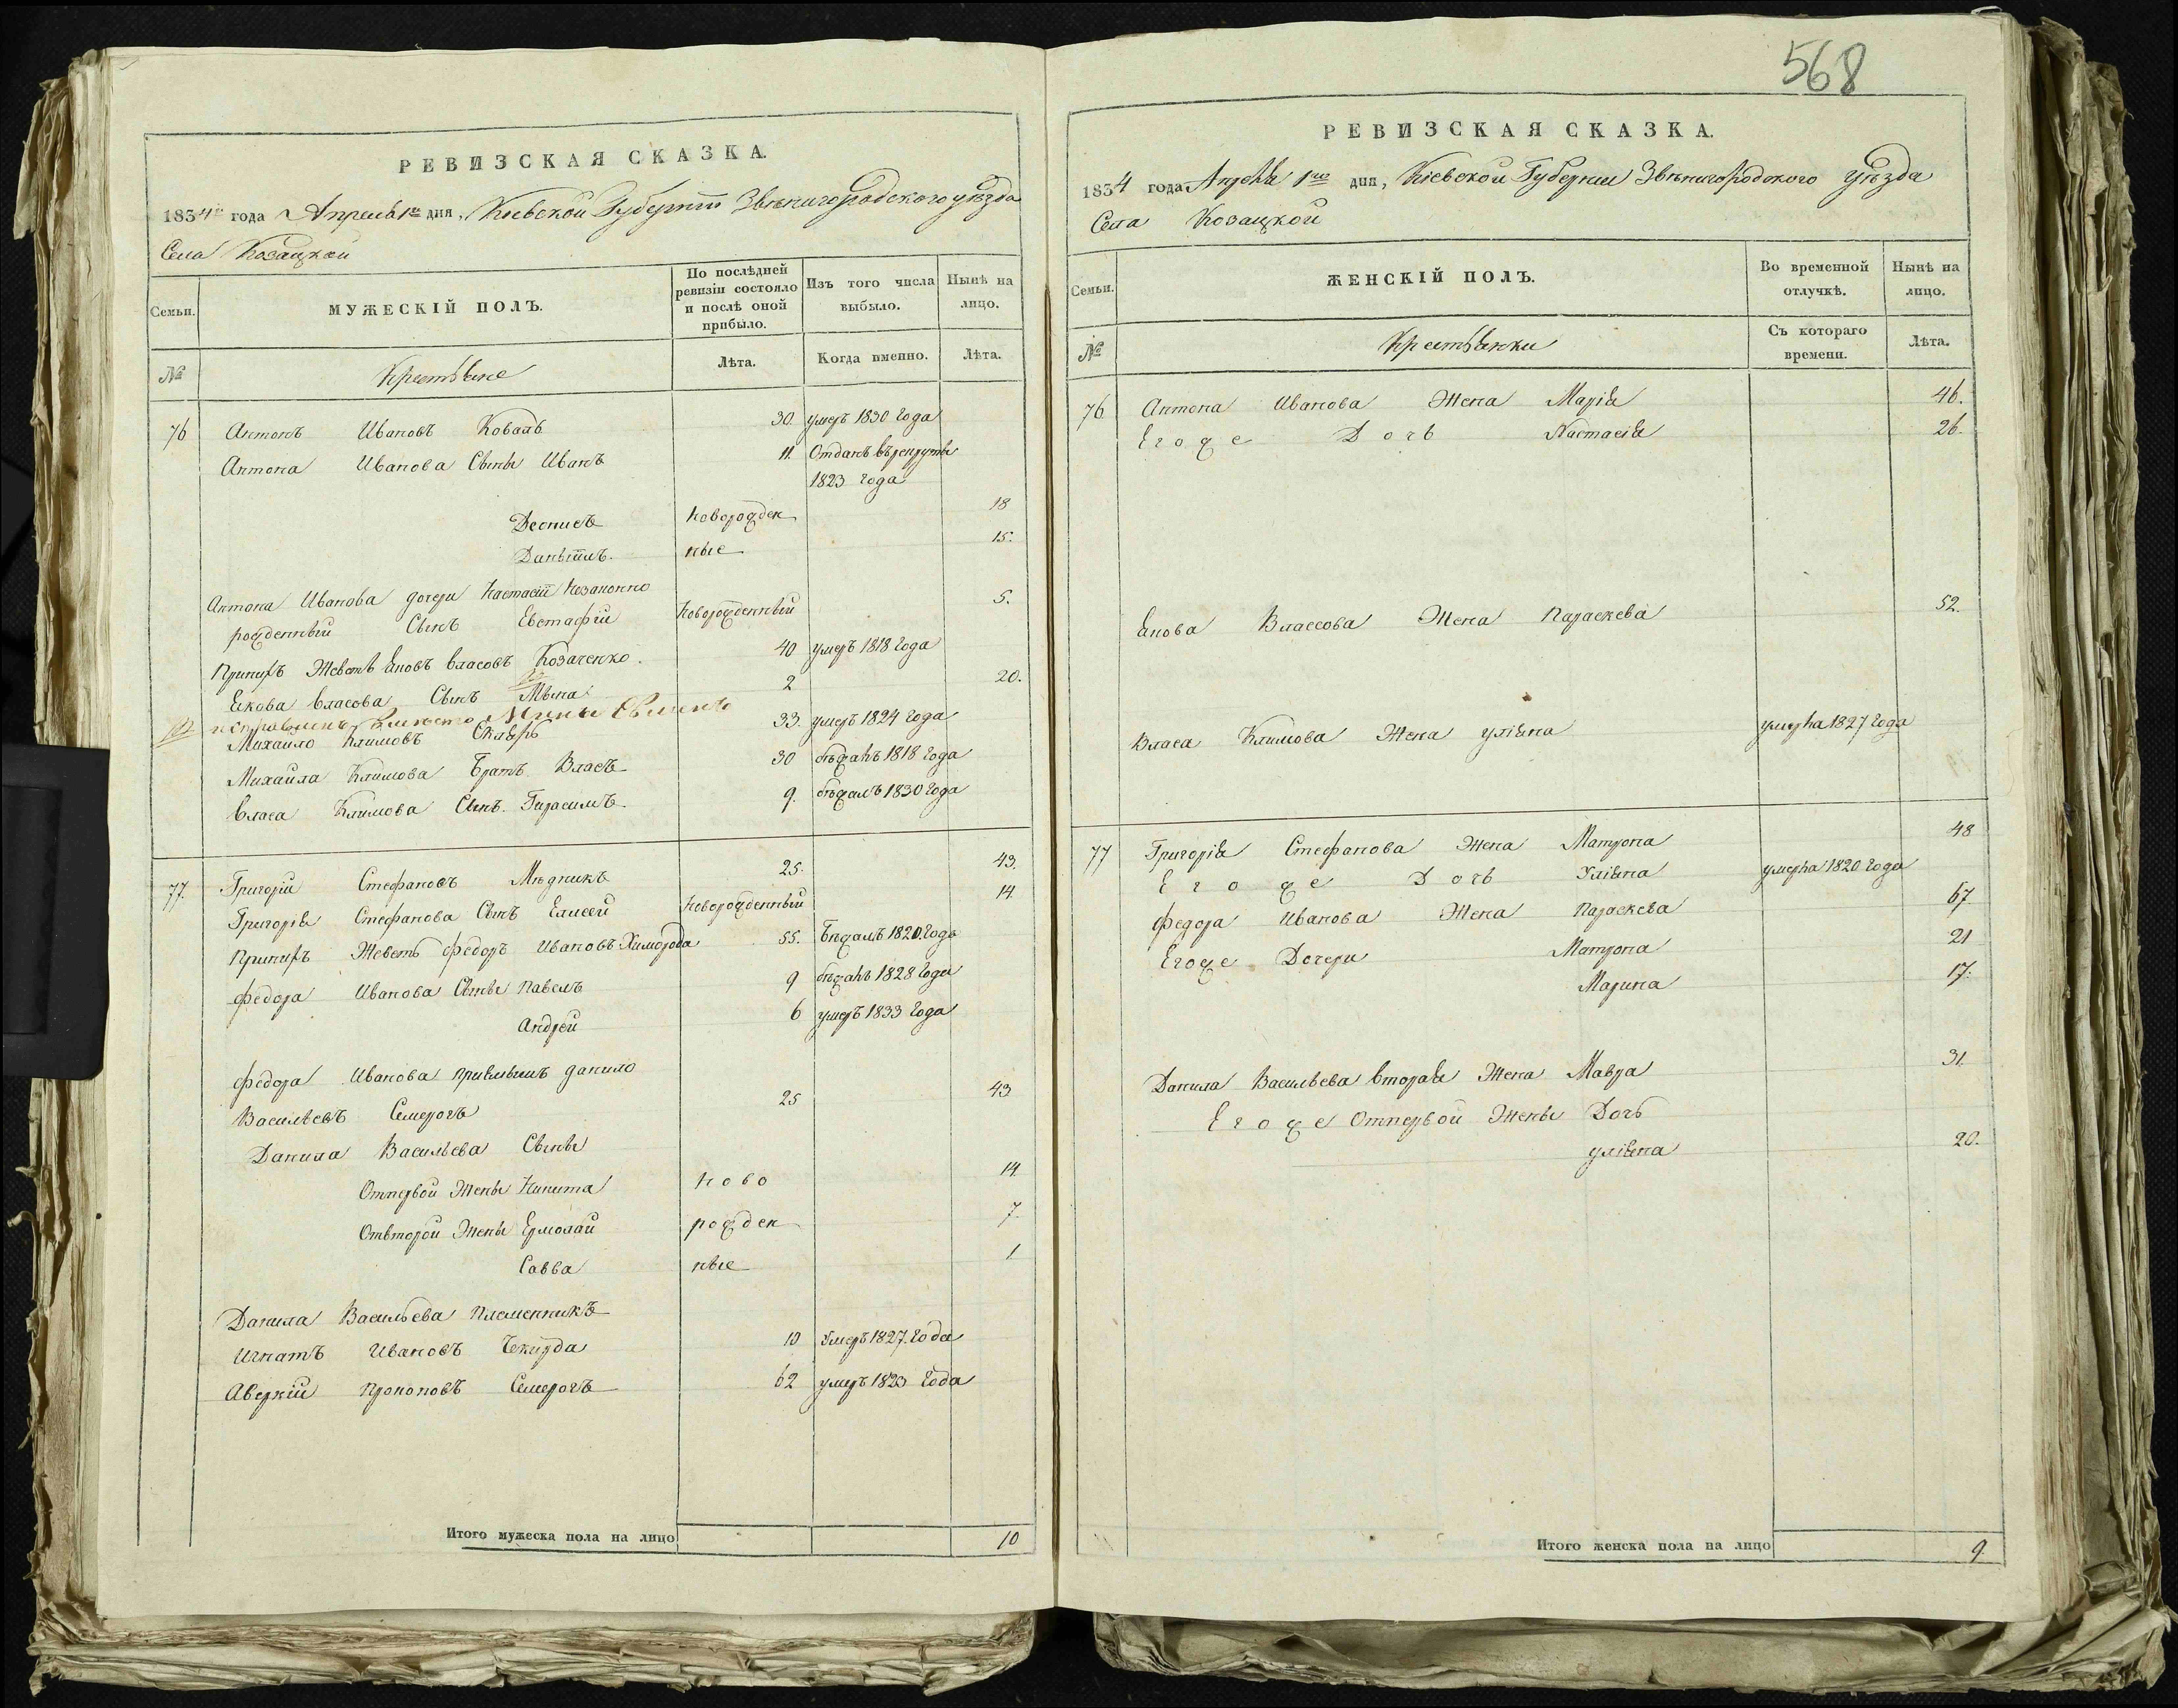 568
РЕВИЗСКАЯ СКАЗКА.
1834го года Апреля 1го дня, Кіевской Губерніи Звѣнигородского уѣзда
Села Козацкой
Семьи.
МУЖЕСКІЙ ПОЛЪ.
По послѣдней ревизіи состояло и послѣ оной прибыло.
Изъ того числа выбыло.
Нынѣ на лицо.
№
Крестьяне
Лѣта.
Когда именно.
Лѣта.
76 Антонъ Ивановъ Коваль 30 умеръ 1830 Года
Антона Иванова Сыны Иванъ 11. Отданъ врекруты
1823 года
Денисъ Новорожден 18
Даніилъ. ные 15.
Антона Иванова дочери Настасіи Незаконно
рожденный Сынъ Евстафій Новорожденный 5.
Припиſъ Жевсть Яковъ Власовъ Козаченко. 40 умеръ 1818 Года
Якова Власова Сынъ Мина 2 20.
вместо Мины
Михайло Климовъ Скляръ 33. умеръ 1824 Года
Михайла Климова Братъ Власъ 30 бѣжалъ 1818 Года
Власа Климова Сынъ Герасимъ 9. бѣжалъ 1830 Года
77. Григорій Стефановъ Мѣдникъ 25. 43.
Григорія Стефанова Сынъ Елисей Новорожденный 14.
Федоръ Ивановъ 55. Бѣжалъ 1820. Года
Федора Иванова Сыны Павелъ 9 бѣжалъ 1828 Года
Андрей 6 умеръ 1833 Года
Федора Иванова приемышъ Данило
Васильевъ Семерогъ 25 43
Данила Васильева Сыны
Отпервой Жены Никита Ново 14.
Отвторой Жены Ермолай рожден 7.
Савва ные 1
Данила Васильева Племенникъ
Игнатъ Ивановъ Чекирда 10 Умеръ 1827. Года
Аверкій Прокоповъ Семерогъ 62 умеръ 1823 Года
Итого мужеска пола на лицо 10
РЕВИЗСКАЯ СКАЗКА.
1834 года Апреля 1го дня, Кіевской Губерніи Звѣнигородского уѣзда
Села Козацкой
Семьи.
ЖЕНСКІЙ ПОЛЪ.
Во временной отлучкѣ.
Нынѣ на лицо.
№
Крестьянки
Съ котораго времени.
Лѣта.
76 Антона Иванова Жена Марія 46.
Егоже Дочь Настасія 26.
Якова Влассова Жена Параскева 52.
Власа Климова Жена Уліяна умерла 1827 Года
77 Григорія Стефанова Жена Матрона 48
Егоже Дочь Уліяна умерла 1820 Года
Федора Иванова Жена Параскева 67
Егоже Дочери Матрона 21
Марина 17.
Данила Васильева вторая Жена Мавра 31.
Егоже Отпервой Жены Дочь
Уліяна 20.
Итого женска пола на лицо 9.